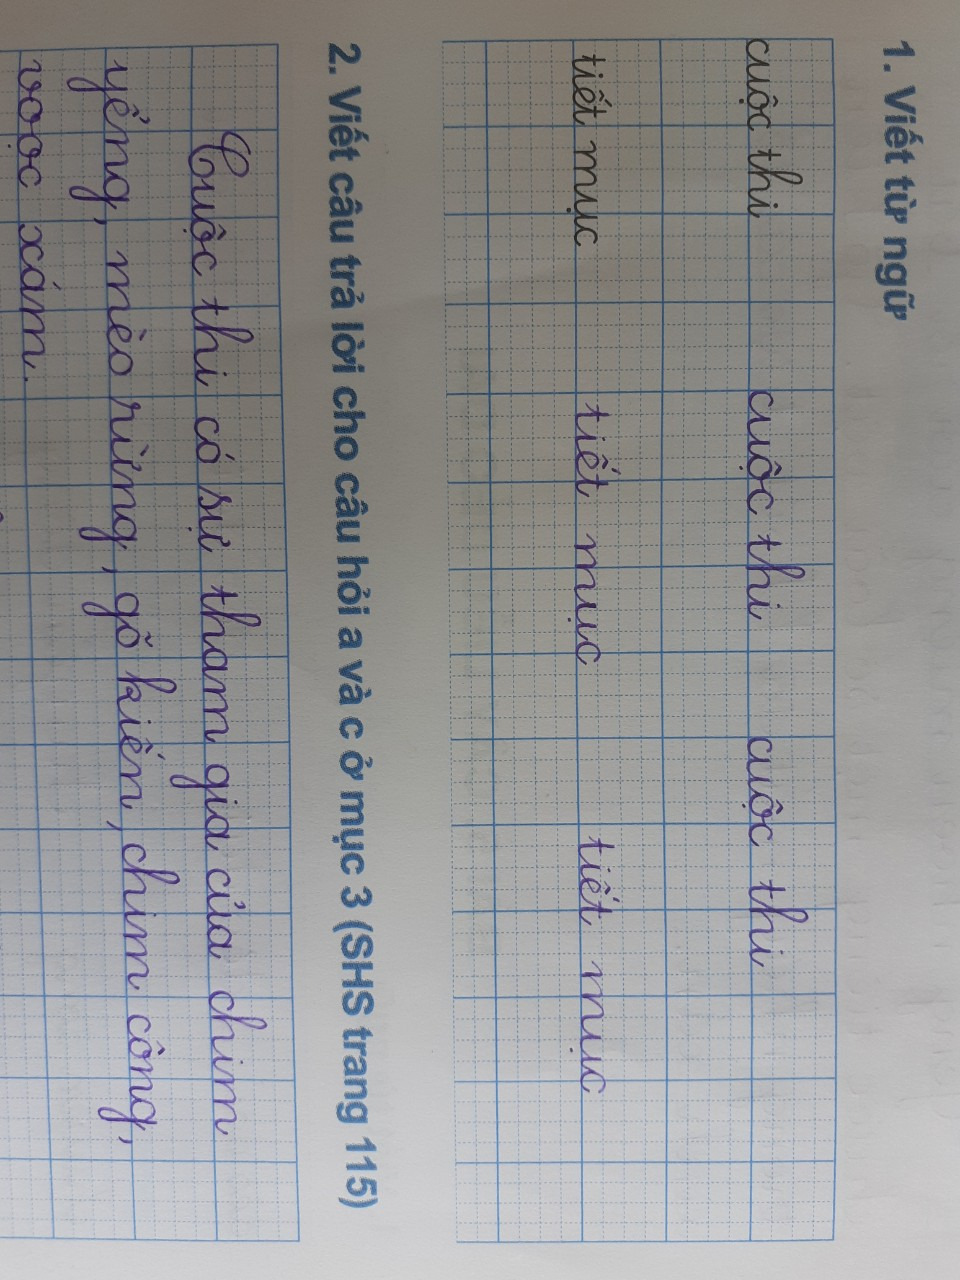 1. Viết từ ngữ
cuộc thi cuộc thi cuộc thi
tiết mục tiết mục tiết mục
2. Viết câu trả lời cho câu hỏi a và c ở mục 3 (SHS trang 115)
Cuộc thi có sự tham gia của chim
yểng, mèo rừng, gõ kiến, chim công,
voọc xám.